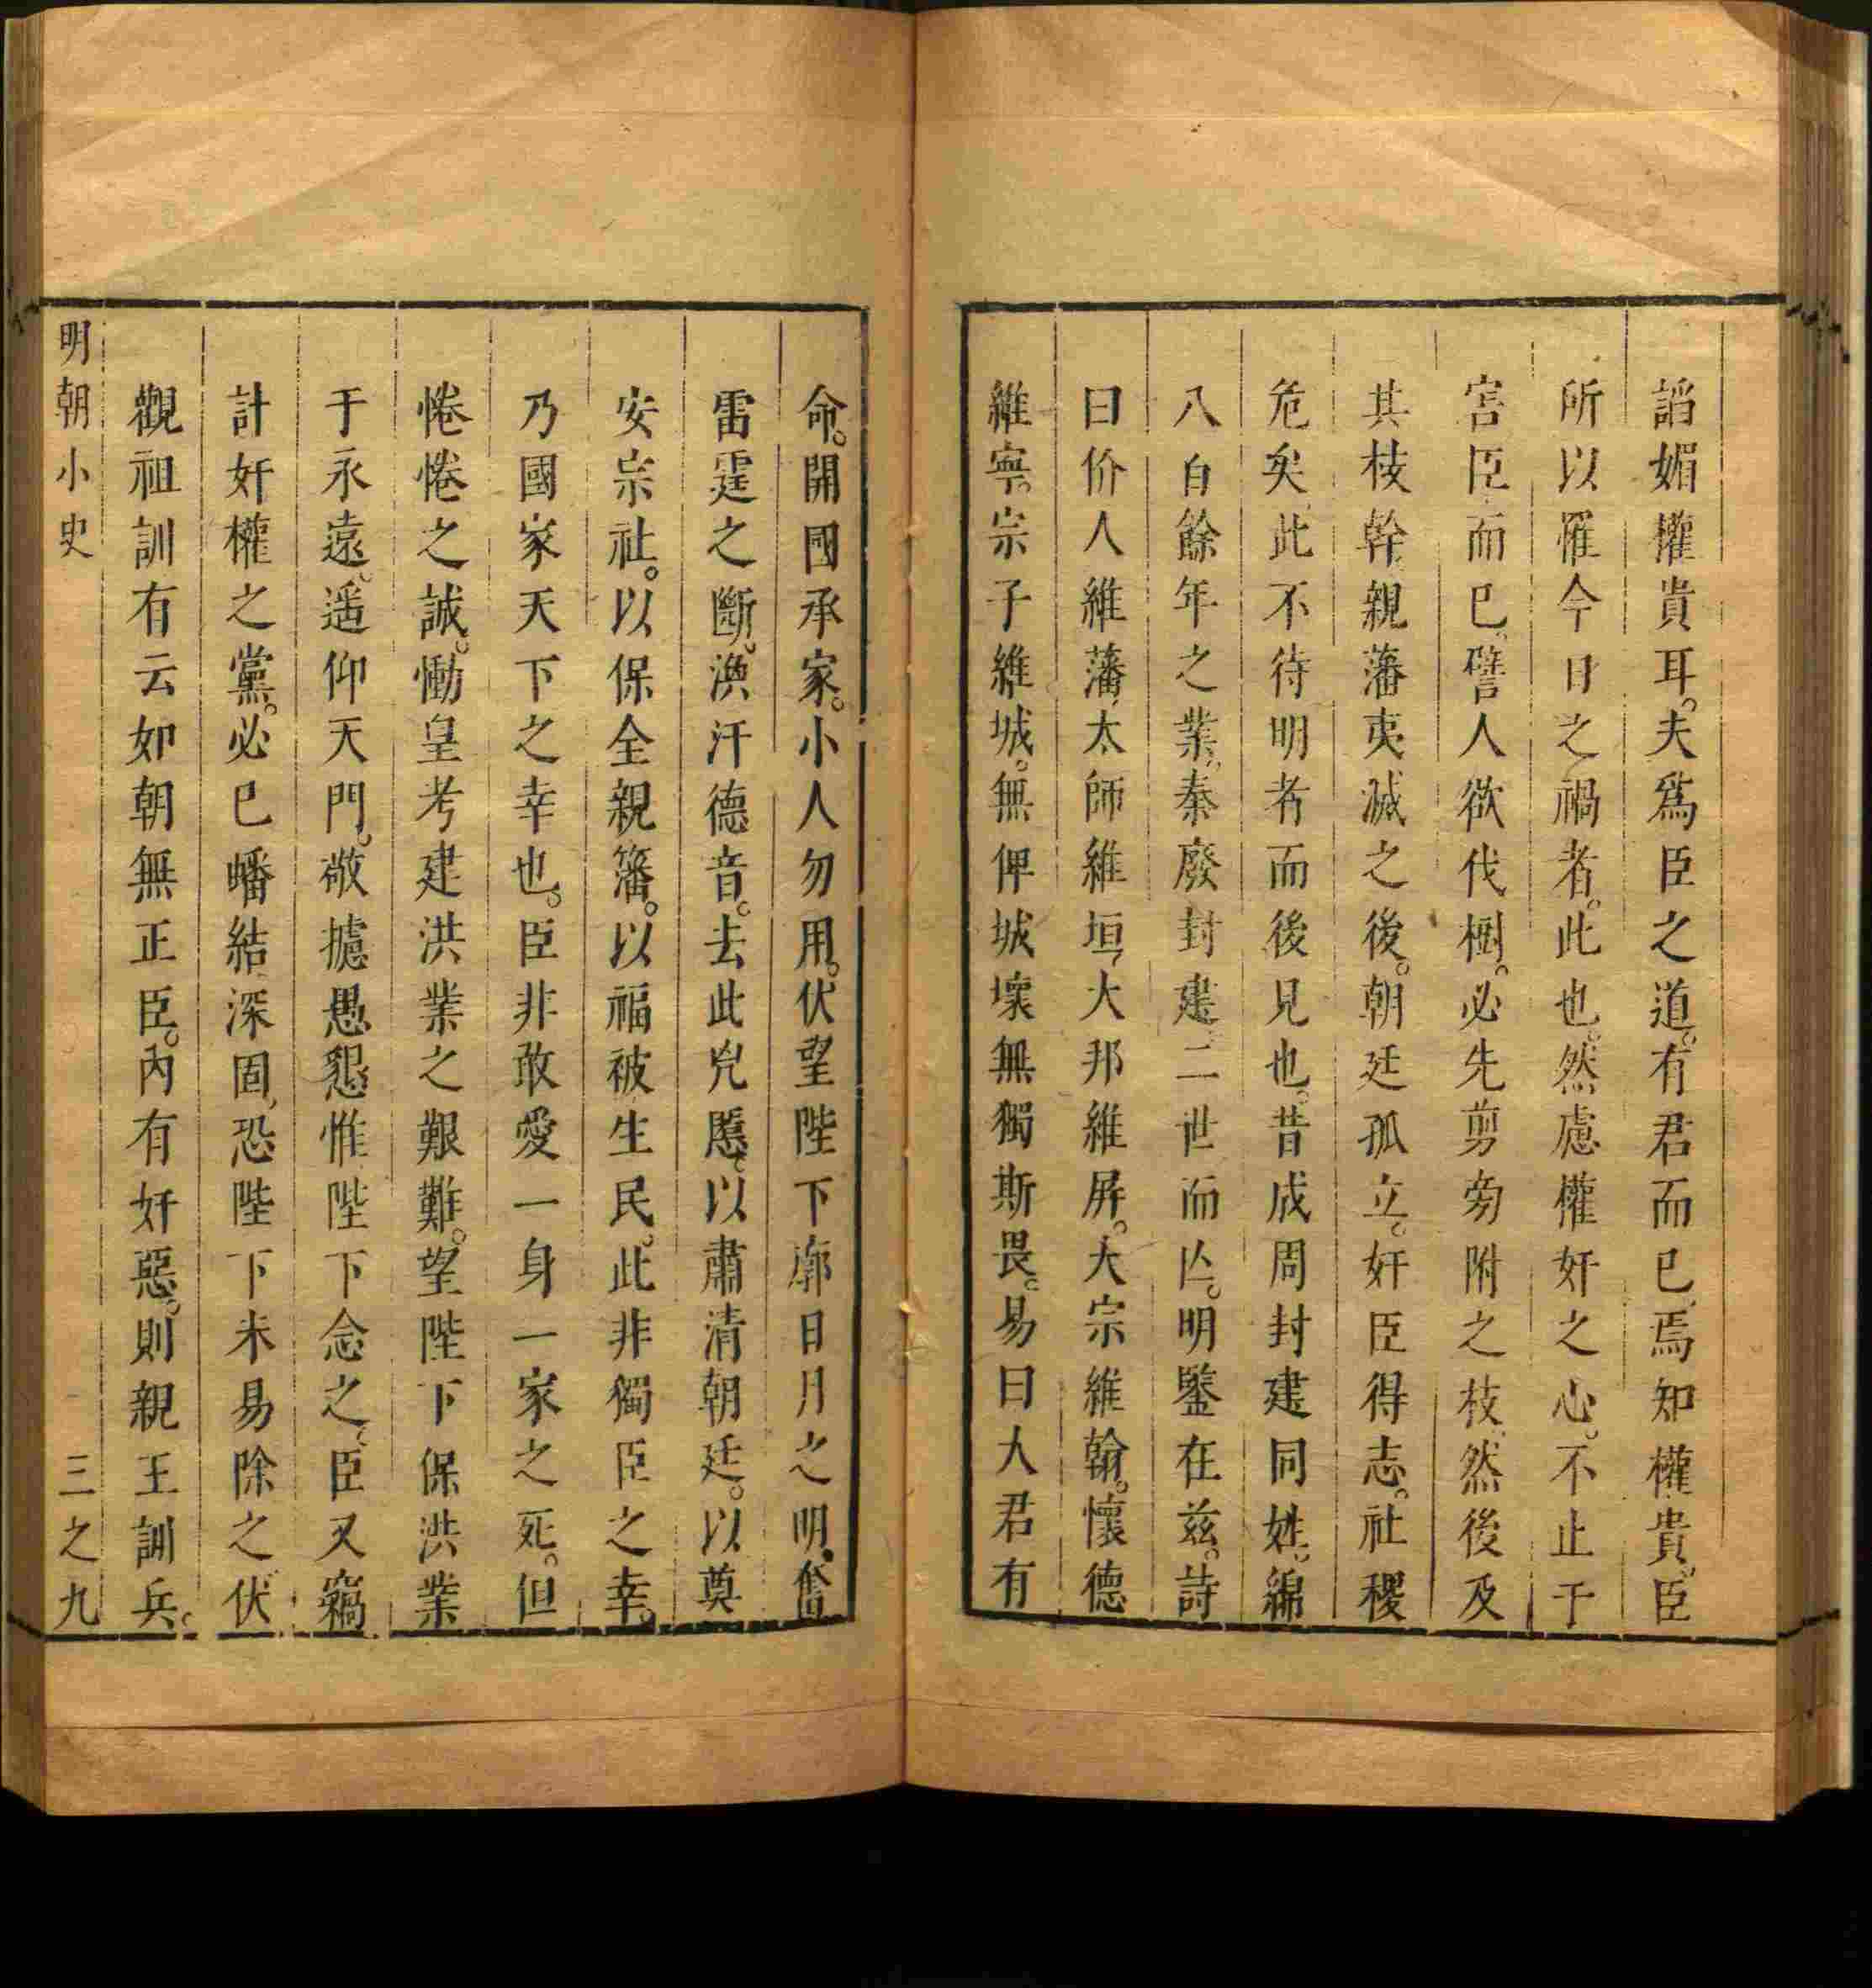 諂媚權貴耳。夫爲臣之道。有君而已、焉知權貴。臣
所以罹今日之禍者。此也。然慮權奸之心。不止于
害臣而已、譬人欲伐樹。必先剪旁附之枝、然後及
其枝幹、親藩夷滅之後。朝廷孤立。奸臣得志。社稷
危矣、此不待明者而後見也。昔成周封建同姓、綿
八百餘年之業、秦廢封建、二世而亾。明鑒在茲。詩
曰价人維藩、太師維垣、大邦維屏。大宗維翰。懷德
維寧。宗子維城。無俾城壞無獨斯畏。易曰大君有
命。開國承家。小人勿用。伏望陛下廓日月之明、奮
雷霆之斷。渙汗德音。去此兇慝、以肅清朝廷。以奠
安宗社。以保全親籓。以福被生民。此非獨臣之幸。
乃國家天下之幸也。臣非敢愛一身一家之死。但
惓惓之誠。慟皇考建洪業之艱難。望陛下保洪業
于永遠。遥仰天門。敬攄愚懇惟陛下念之、臣又竊
計奸權之黨。必已蟠結深固、恐陛下未易除之、伏
觀祖訓有云如朝無正臣。內有奸惡。則親王訓兵。
明朝小史 三之九